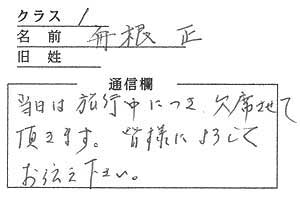 クラス 1
名前 舟根 正
旧姓
通信欄
当日は旅行中につき、欠席させて
頂きます。皆様によろしく
お伝え下さい。